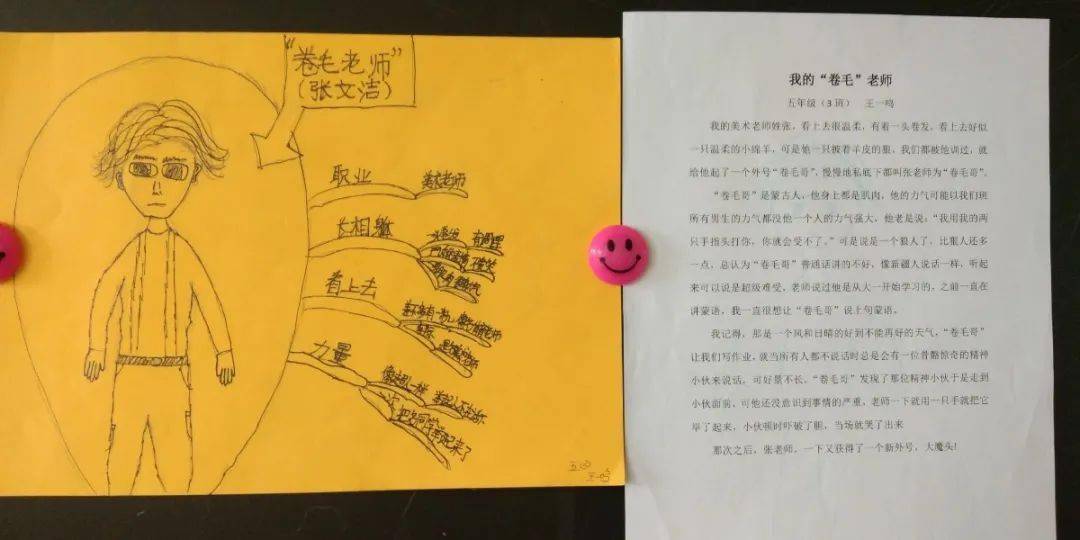 “卷毛老师”
(张文洁)
职业
美术老师
长相
看上去
力量
把
起来了
五(3)
王一鸣
我的“卷毛”老师
五年级（3 班） 王一鸣
我的美术老师姓张，看上去很温柔，有着一头卷发，看上去好似
一只温柔的小绵羊，可是他一只披着羊皮的狼，我们都被他训过，就
给他起了一个外号“卷毛哥”，慢慢地私底下都叫张老师为“卷毛哥”。
“卷毛哥”是蒙古人，他身上都是肌肉，他的力气可能以我们班
所有男生的力气都没他一个人的力气强大，他老是说：“我用我的两
只手指头打你，你就会受不了。”可是说是一个狠人了，比狠人还多
一点，总认为“卷毛哥”普通话讲的不好，像新疆人说话一样，听起
来可以说是超级难受，老师说过他是从大一开始学习的，之前一直在
讲蒙语，我一直很想让“卷毛哥”说上句蒙语。
我记得，那是一个风和日晴的好到不能再好的天气，“卷毛哥”
让我们写作业，就当所有人都不说话时总是会有一位骨骼惊奇的精神
小伙来说话，可好景不长，“卷毛哥”发现了那位精神小伙于是走到
小伙面前，可他还没意识到事情的严重，老师一下就用一只手就把它
举了起来，小伙顿时吓破了胆，当场就哭了出来
那次之后，张老师，一下又获得了一个新外号，大魔头！